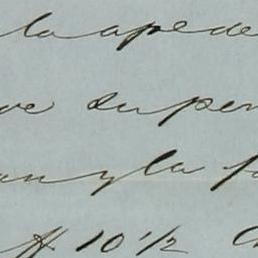 la apede
ve super
an y la fa
A 10 1/2